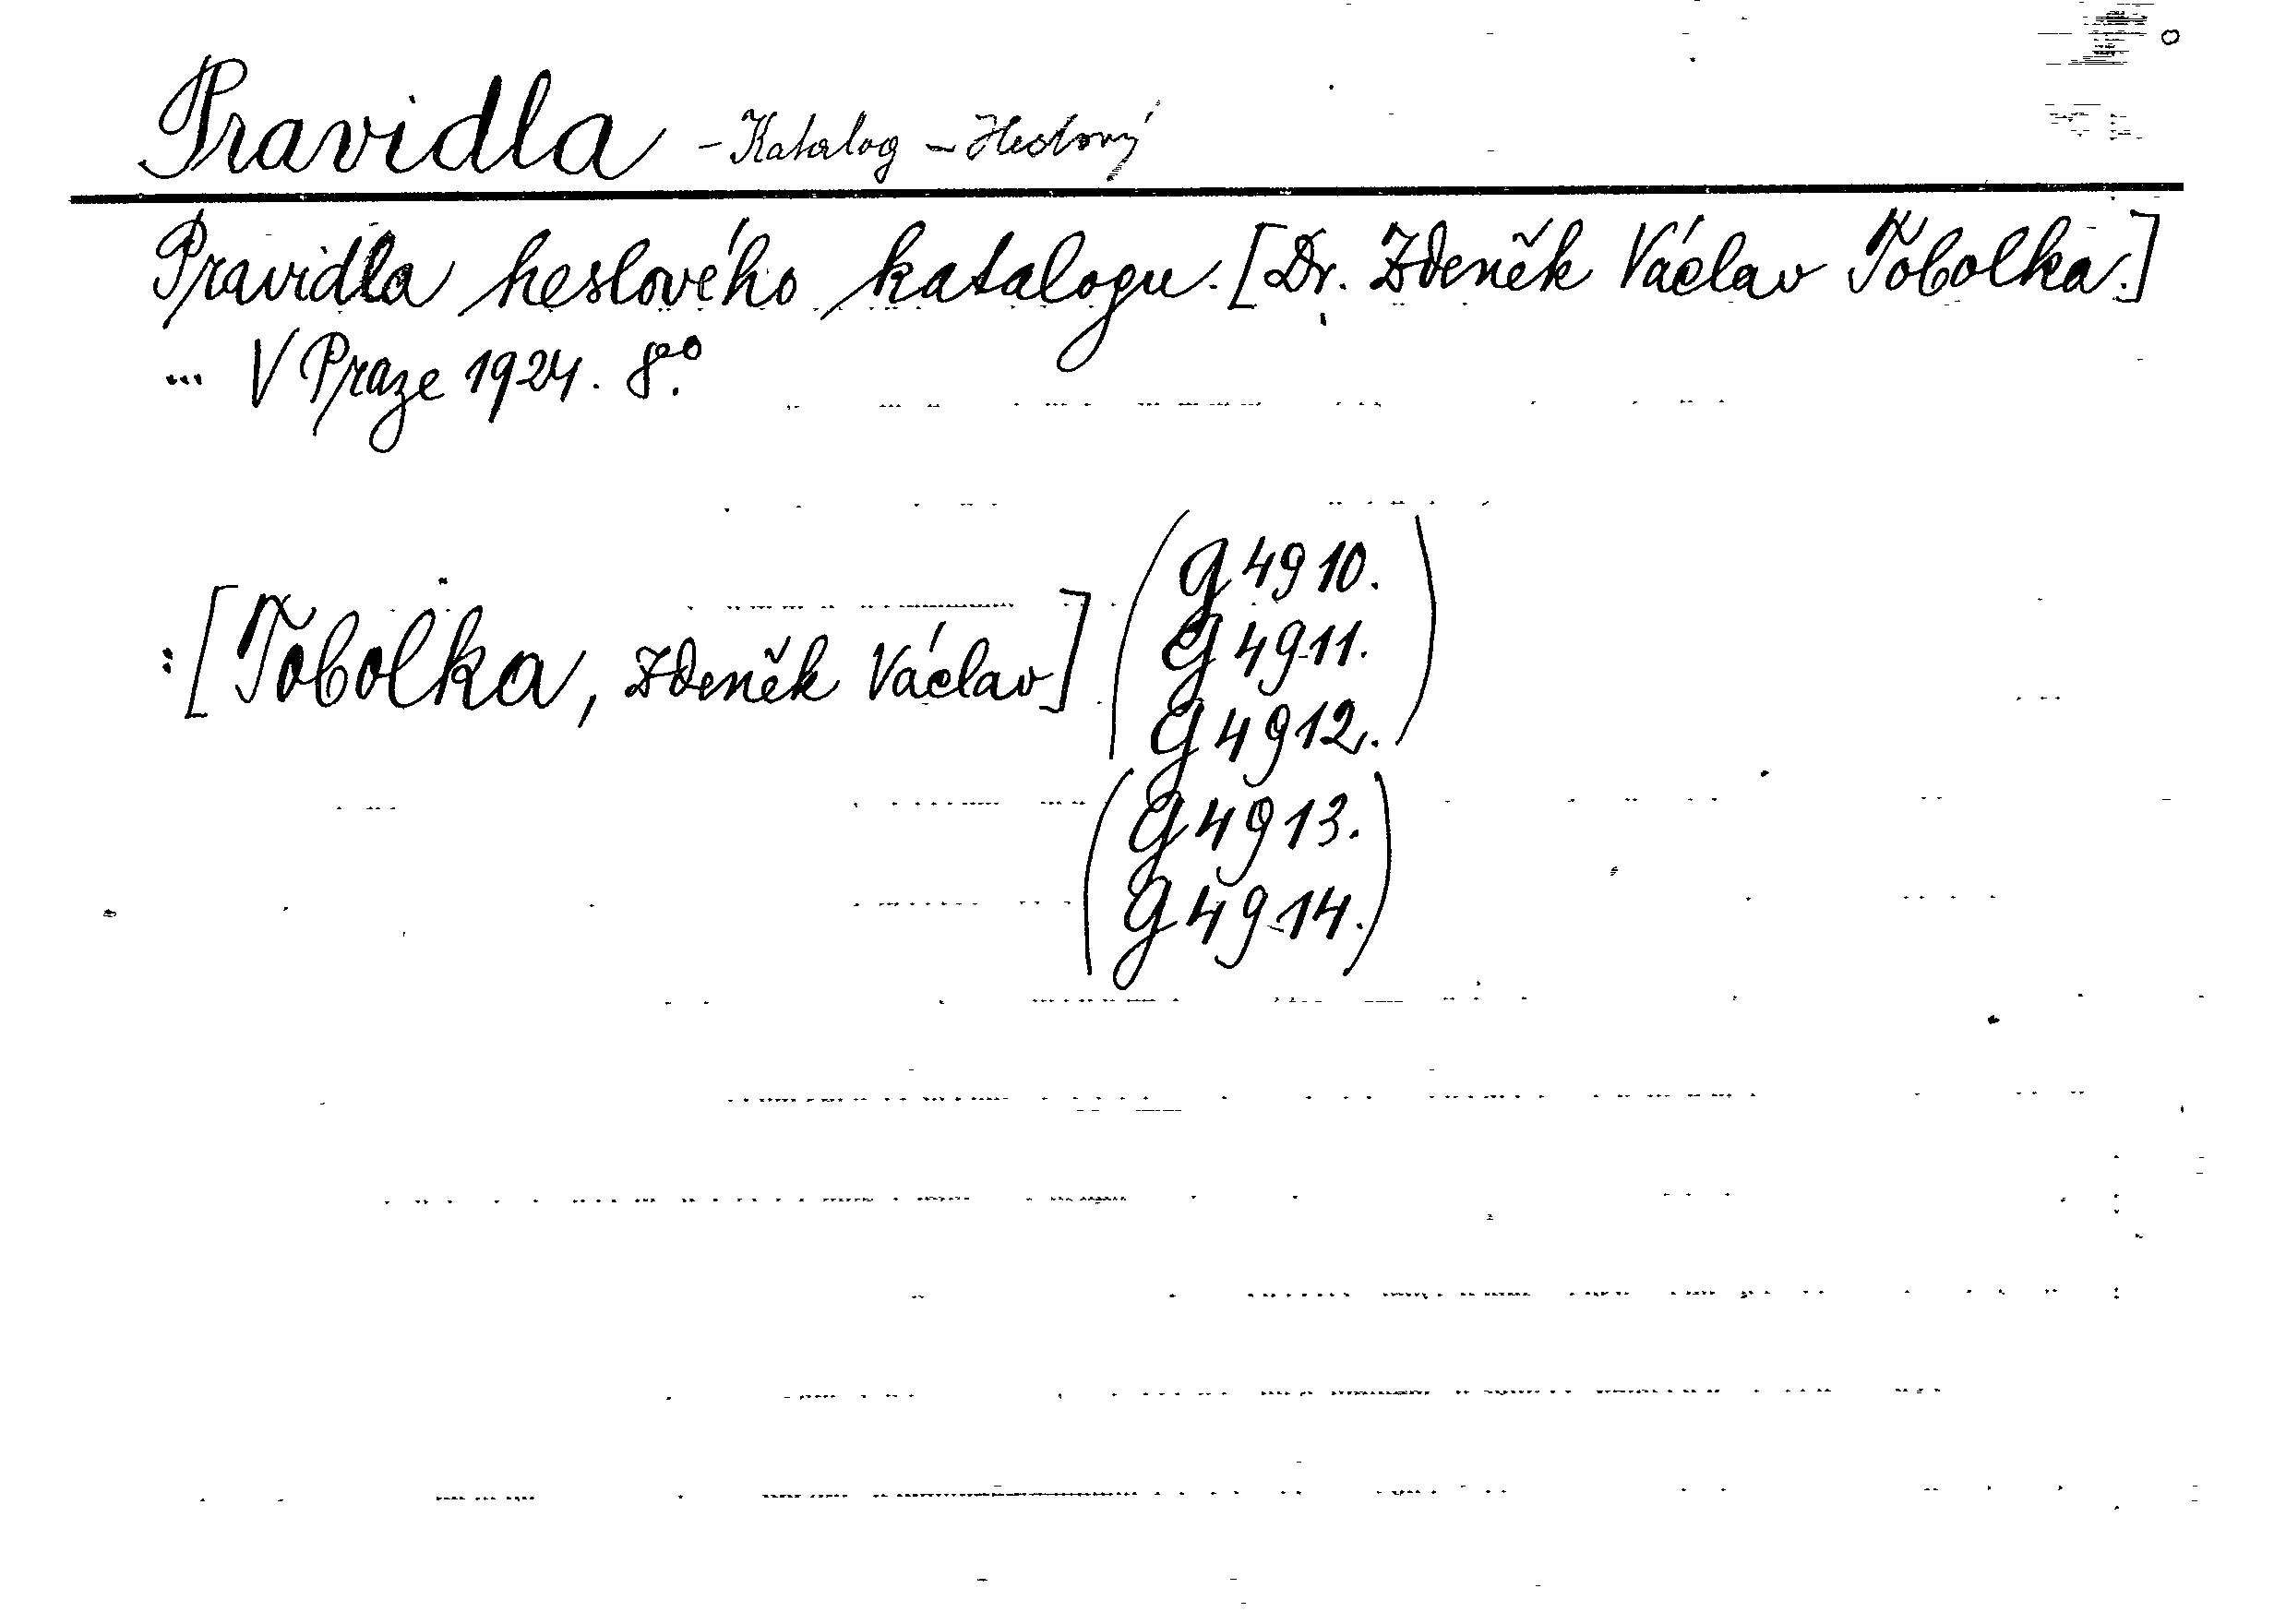 Pravidla - Katalog - Heslový
Pravidla heslového katalogu. [Dr. Zdeněk Václav Tobolka.]
... V Praze 1924. 8eo.
:[Tobolka, Zdeněk Václav]
(G 4910.
G 4911.
G 4912.)
(G 4913.
G 4914.)